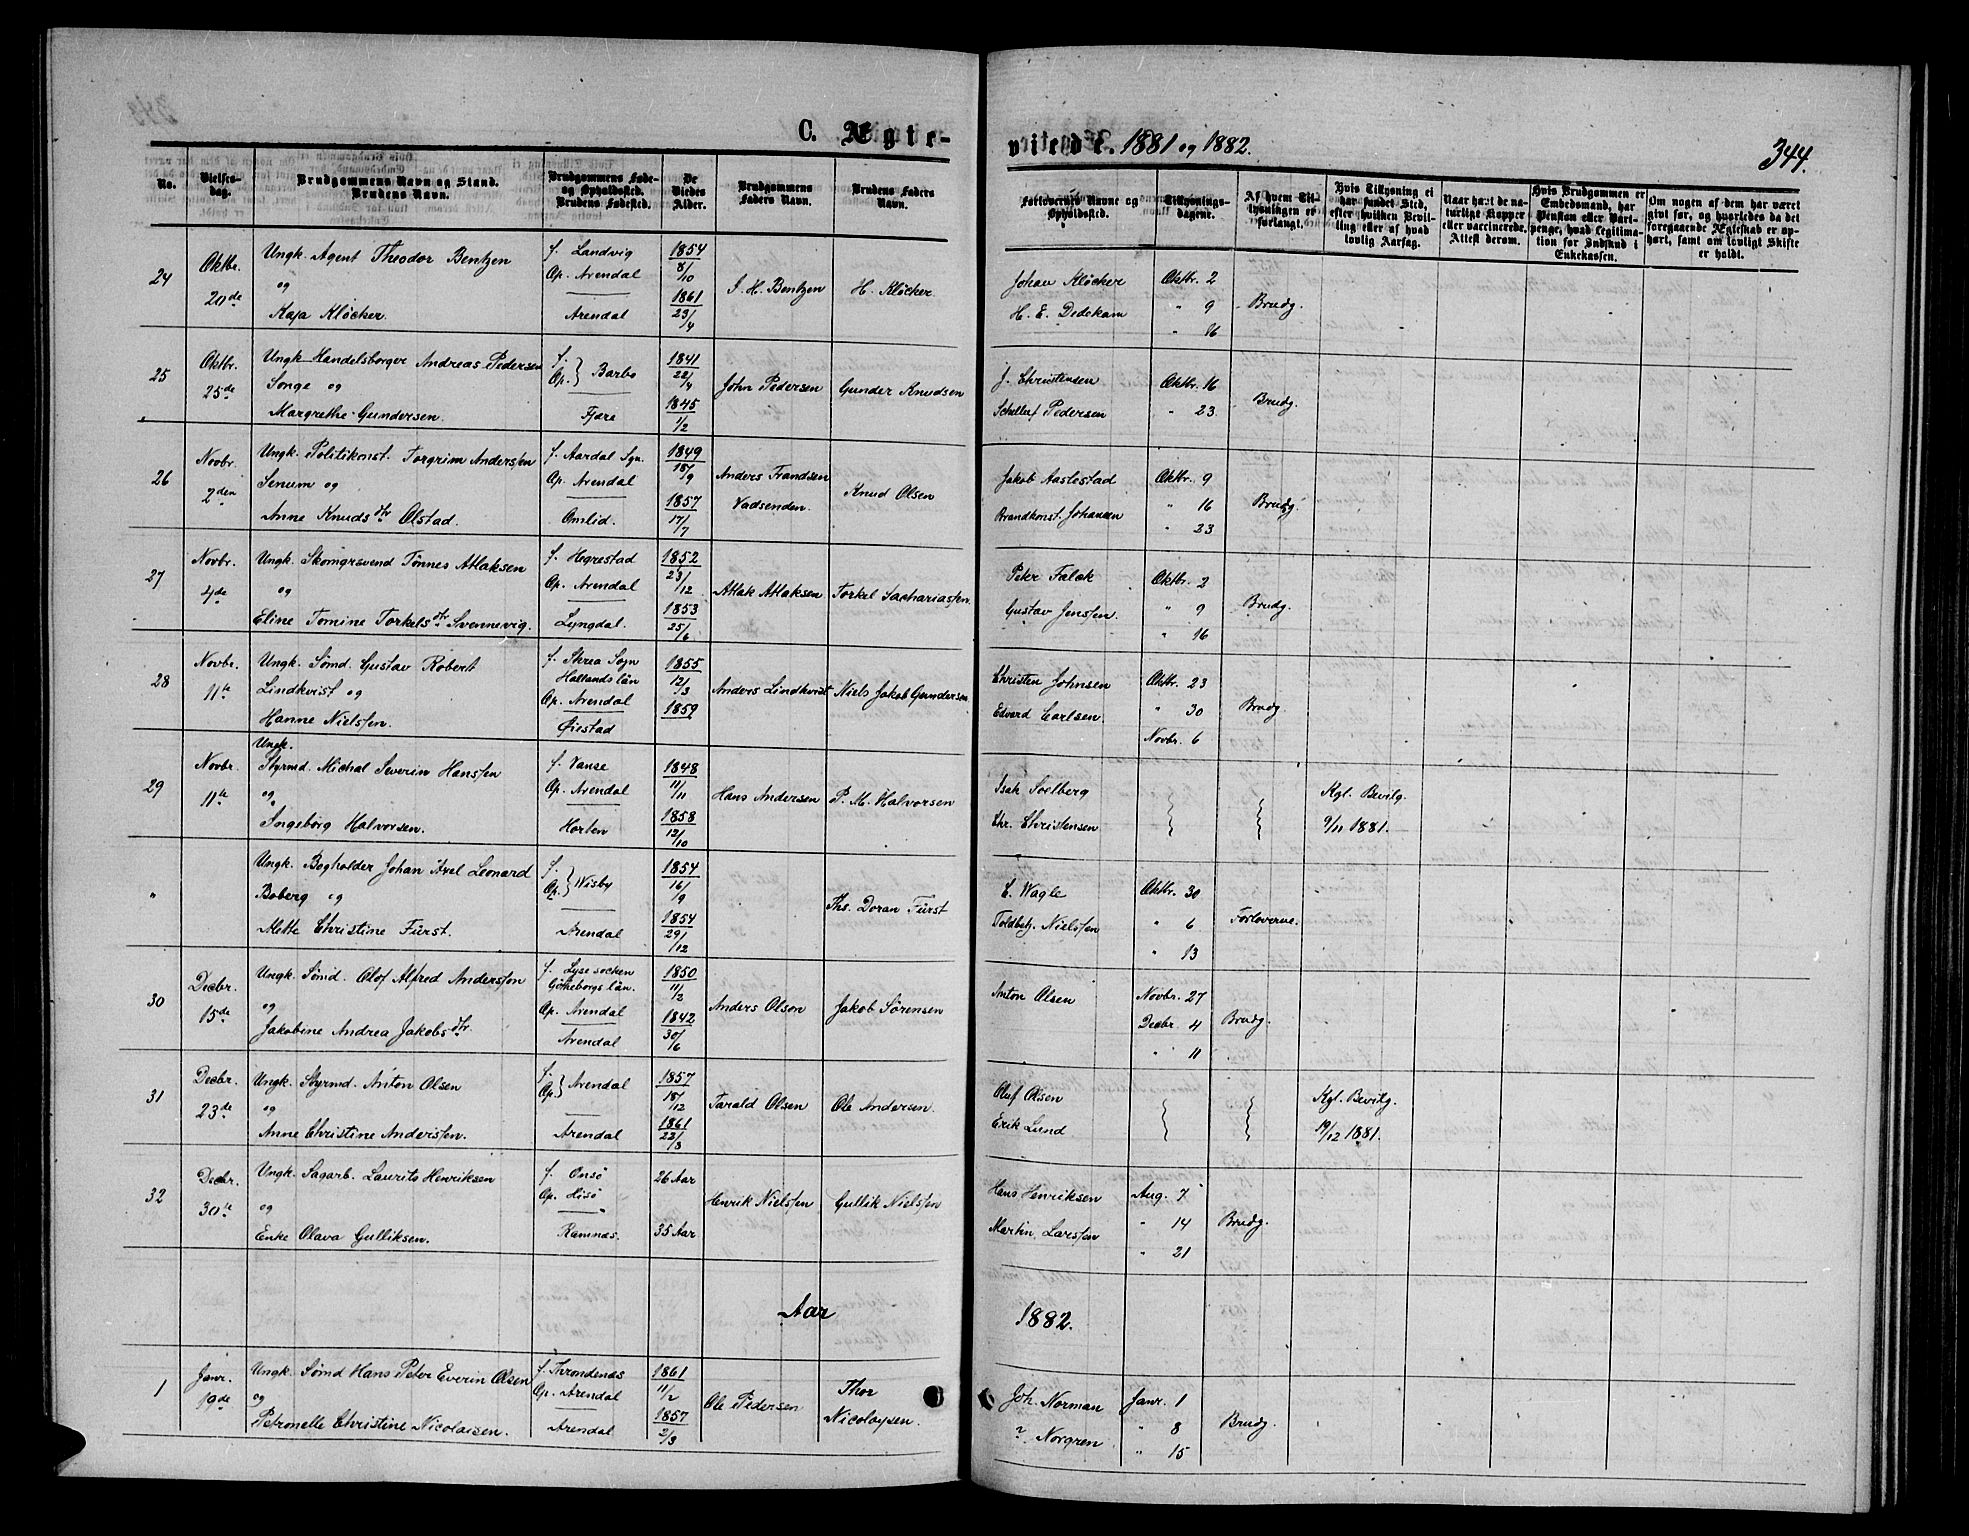 C. Ægte-
viede. 1881 og 1882.
344.
No.
Vielses-
dag.
Brudgommens Navn og Stand.
Brudens Navn.
Brudgommens Føde-
og Opholdssted.
Brudens Fødested.
De
Viedes
Alder.
Brudgommens
Faders Navn.
Brudens Faders
Navn.
Forlovernes Navne og
Opholdssted.
Tillysnings-
dagene.
Af hvem Til-
lysningen er
forlangt.
Hvis Tillysning ei
har fundet Sted,
efter hvilken Bevil-
ling eller af hvad
lovlig Aarsag.
Naar havt de na-
turligt Kopper
eller vaccinerede.
Attest derom.
Hvis Brudgommen er
Embedsmand, har
Pension eller Vart-
penge, hvad Legitima-
tion for Indskud i
Enkekassen.
Om nogen af dem har været
gift før, og hvorledes da det
foregaaende Ægteskab er op-
hørt, samt om lovligt Skifte
er holdt.
24
Oktbr.
20de
Ungk. Agent Theodor Bentzen
og
Kaja Kløcker.
f. Landvig
Op. Arendal
Arendal
1854
8/10
1861
23/4
J. H. Bentzen
H. Kløcker
Johan Kløcker
H. E. Dedekam
Oktbr. 2
" 9
" 16
Brudg.
25
Oktbr.
25de
Ungk Handelsborger Andreas Pedersen
Songe og
Margrethe Gundersen.
f.
Op. } Barbo
Fjære
1841
22/4
1845
1/2
John Pedersen
Gunder Knudsen
J. Christensen
Schelluf Pedersen
Oktbr. 16
" 23
Brudg.
26
Novbr.
2den
Ungk. Politikonst. Torgrim Anderssen
Senum og
Anne Knudsdtr Olstad.
f. Aardal Sgn.
Op. Arendal
Omlid.
1849
18/9
1857
17/7
Anders Frandsen
Vadsenden.
Knud Olsen
Jakob Aaslestad
Brandkonst. Johansen
Oktbr. 9
" 16
" 23
Brudg.
27
Novbr.
4de
Ungk. Skomgrsvend Tönnes Atlaksen
og
Eline Tomine Torkelsdtr Svennevig.
f. Hegrestad
Op. Arendal
Lyngdal.
1852
23/12
1853
25/6
Atlak Atlaksen
Torkel Sachariassen
Peter Falck
Gustav Jenssen.
Oktbr. 2
" 9
" 16
Brudg.
28
Novbr.
11te
Ungk. Sømd. Gustav Robert
Lindkvist og
Hanne Nielssen.
f. Skrea Sogn
Hallands län
Op. Arendal
Øiestad
1855
12/3
1859
Anders Lindkvist
Niels Jakob Gundersen
Christen Johnsen
Edvard Carlsen.
Oktbr. 23
" 30
Novbr. 6
Brudg.
29
Novbr.
11te
Ungk.
Styrmd. Michal Severin Hanssen
og
Ingeborg Halvorsen.
f. Vanse
Op. Arendal
Horten
1848
11/11
1858
12/10
Hans Andersen
P. M. Halvorsen
Isak Soelberg
Chr. Christensen
Kgl. Bevilg.
9/11 1881.
"
Ungk. Bogholder Johan Axel Leonard
Boberg og
Mette Christine Fürst.
f.
Op. } Wisby
Arendal
1854
16/9
1854
29/12
Ths. Doran Fürst
E. Wagle
Toldbetj. Nielssen
Oktbr. 30
" 6
" 13
Forloverne.
30
Decbr.
15de
Ungk. Sømd. Olof Alfred Andersson
og
Jakobine Andrea Jakobsdtr.
f. Lyse socken
Götheborgs län.
Op. Arendal
Arendal
1850
11/2
1842
30/6
Anders Olson
Jakob Sörensen
Anton Olsen
Novbr. 27
Decbr. 4
" 11
Brudg.
31
Decbr.
23de
Ungk. Styrmd. Anton Olsen
og
Anne Christine Anderssen.
f.
Op. } Arendal
Arendal
1857
18/12
1861
22/3
Tarald Olsen
Ole Andersen.
Oluf Olsen
Erik Lund
Kgl. Bevilg.
19/12 1881.
32
Decbr.
30te
Ungk. Sagarb. Laurits Henriksen
og
Enke Olava Gulliksen.
f. Onsö
Op. Hisö
Ramnæs.
26 Aar
35 Aar
Henrik Nielssen
Gullik Nielssen
Hans Henriksen
Martin Larssen
Aug. 7
" 14
" 21
Brudg.
Aar
1882.
1
Janr.
19de
Ungk. Sømd Hans Peter Everin Olsen
og
Petronelle Christine Nicolaisen.
f. Throndenæs
Op. Arendal
Arendal
1861
11/2
1857
2/3
Ole Pedersen
Thor
Nicolaysen.
Joh. Norman
? Norgren
Janr. 1
" 8
" 15
Brudg.